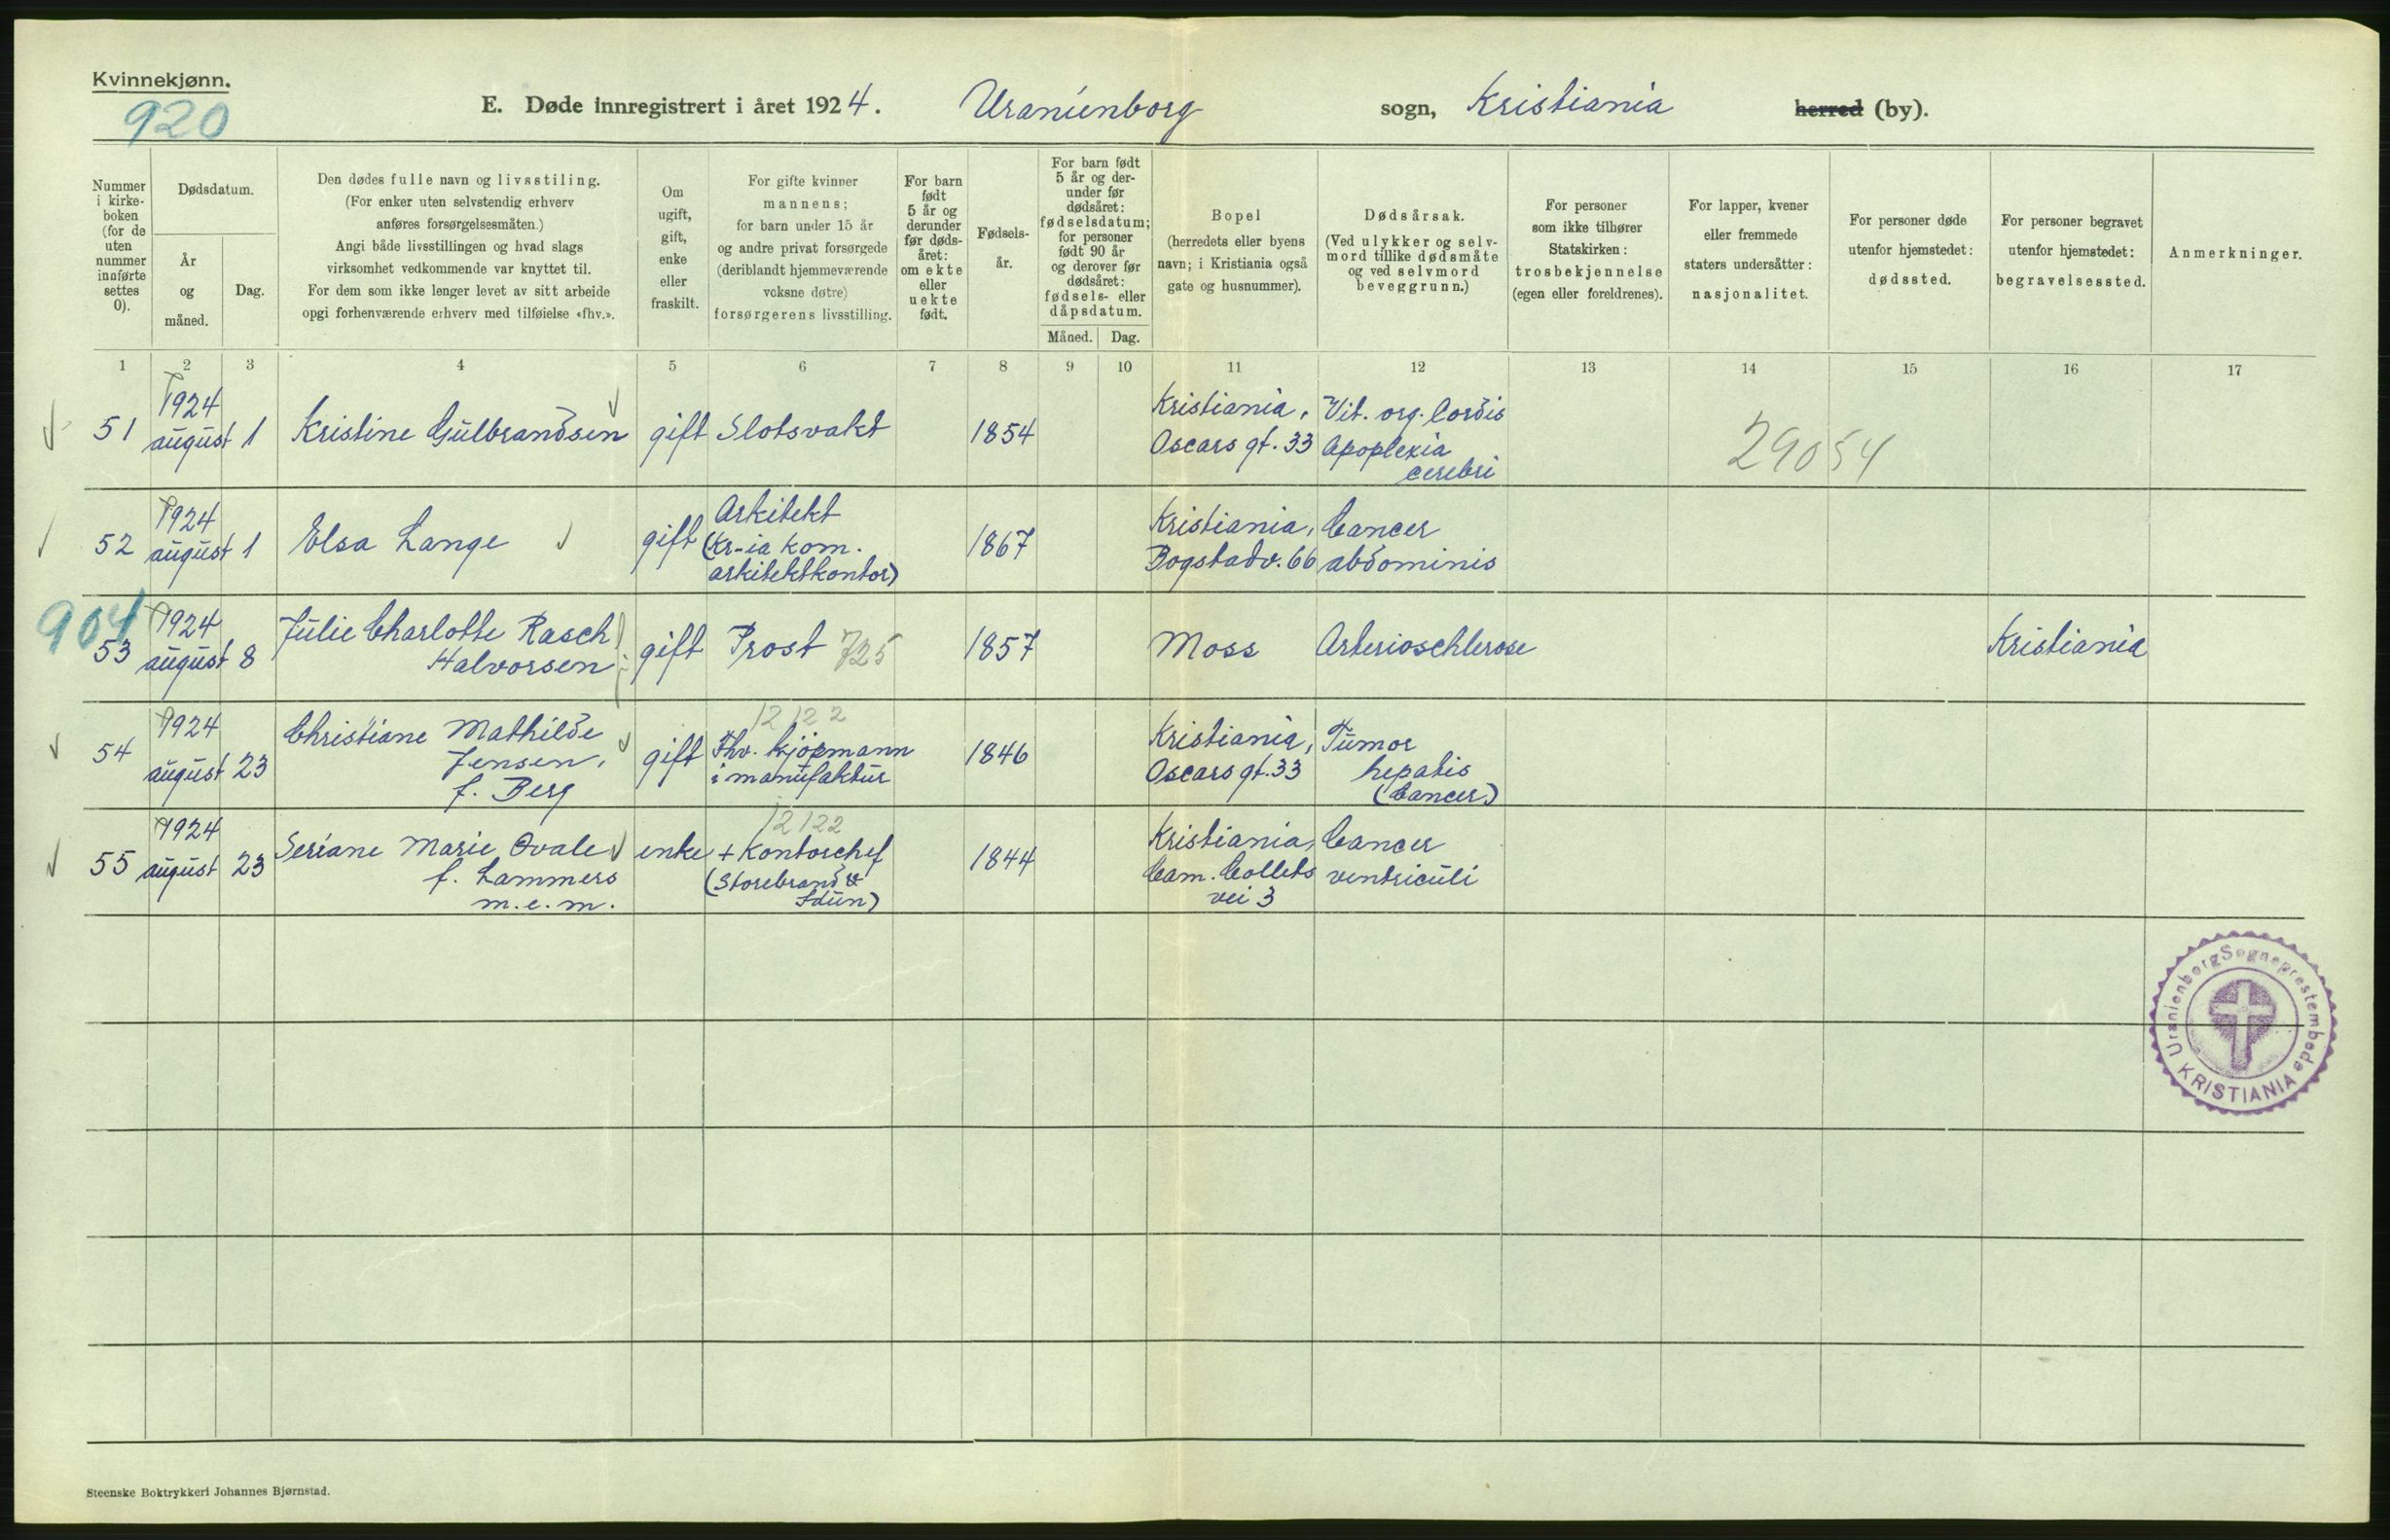 Kvinnekjønn.
920
E. Døde innregistrert i året 1924. Uranienborg sogn, Kristiania herred (by).
Nummer
i kirke-
boken
(for de
uten
nummer
innførte
settes
0).
Dødsdatum.
År
og
måned.
Dag.
Den dødes fulle navn og livsstiling.
(For enker uten selvstendig erhverv
anføres forsørgelsesmåten.)
Angi både livsstillingen og hvad slags
virksomhet vedkommende var knyttet til.
For dem som ikke lenger levet av sitt arbeide
opgi forhenværende erhverv med tilføielse «fhv.».
Om
ugift,
gift,
enke
eller
fraskilt.
For gifte kvinner
mannens;
for barn under 15 år
og andre privat forsørgede
(deriblandt hjemmeværende
voksne døtre)
forsørgerens livsstilling.
For barn
født
5 år og
derunder
før døds-
året:
om ekte
eller
uekte
født.
Fødsels-
år.
For barn født
5 år og der-
under før
dødsåret:
fødselsdatum;
for personer
født 90 år
og derover før
dødsåret:
fødsels- eller
dåpsdatum.
Måned. Dag.
Bopel
(herredets eller byens
navn; i Kristiania også
gate og husnummer).
Dødsårsak.
(Ved ulykker og selv-
mord tillike dødsmåte
og ved selvmord
beveggrunn.)
For personer
som ikke tilhører
Statskirken:
trosbekjennelse
(egen eller foreldrenes).
For lapper, kvener
eller fremmede
staters undersåtter:
nasjonalitet.
For personer døde
utenfor hjemstedet:
dødssted.
For personer begravet
utenfor hjemstedet:
begravelsessted.
Anmerkninger.
1 2 3 4 5 6 7 8 9 10 11 12 13 14 15 16 17
51
1924
august 1
Kristine Gulbrandsen
gift
Slotsvakt
1854
Kristiania,
Oscars gt. 33
Vit. org. Cordis
Apoplexia
cerebri
29054
52
1924
august 1
Elsa Lange
gift
Arkitekt
(Kr-ia kom.
arkitektkontor)
1867
Kristiania,
Bogstadv. 66
Cancer
abdominis
904
53
1924
august 8
Julie Charlotte Rasch
Halvorsen
gift
Prost 725
1857
Moss
Arterioschlerose
Kristiania
54
1924
august 23
Christiane Mathilde
Jensen,
f. Berg
gift
12122
Fhv. kjøpmann
i manufaktur
1846
Kristiania,
Oscars gt. 33
Tumor
hepatis
(Cancer)
55
1924
august 23
Seriane Marie Qvale
f. Lammers
m.e.m.
enke
12122
+ Kontorchef
(Storebrand &
Idun)
1844
Kristiania,
Cam. Colletts
vei 3
Cancer
ventriculi
Uranienborg Sogneprestembede
KRISTIANIA
Steenske Boktrykkeri Johannes Bjørnstad.